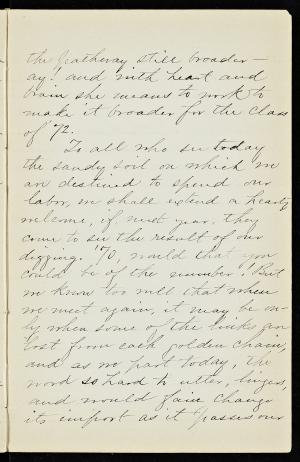 the pathway still broader —
ay! and with heart and
brain she means to work to
make it broader for the class
of '72.
To all who see today
the sandy soil on which we
are destined to spend our
labor, we shall extend a hearty
welcome, if next year, they
come to see the result of our
digging. '70, would that you
could be of the number! But
we know too well that when
we meet again, it may be on-
ly when some of the links are
lost from each golden chain,
and as we part today, the
word so hard to utter, lingers,
and would fain change
its import as it passes our